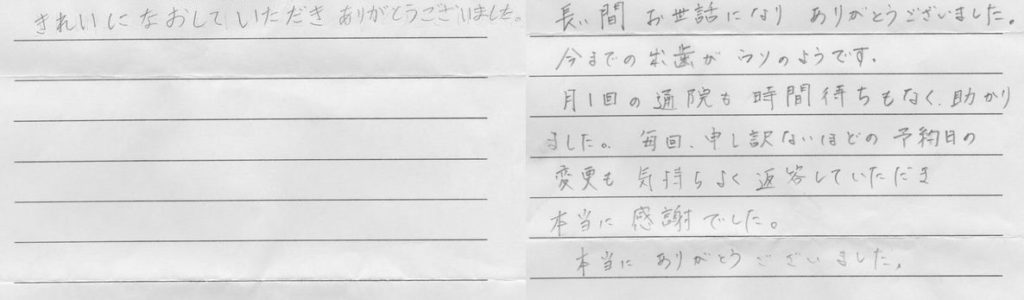 きれいになおしていただき ありがとうございました。
長い間 お世話になり ありがとうございました。
今までの出歯が ウソのようです。
月1回の通院も 時間待ちもなく、助かり
ました。 毎回、申し訳ないほどの 予約日の
変更も 気持ちよく 返答していただき
本当に 感謝でした。
本当に ありがとう ございました。